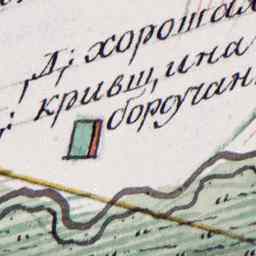 Д; хорошал
; кривщина
борсучан